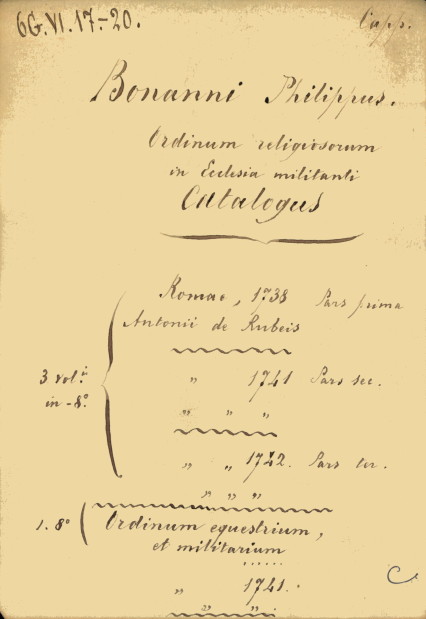 6G.VI.17-20.
Capp.
Bonanni Philippus.
Ordinum religiosorum
in Ecclesia militanti
Catalogus
Romae, 1738 Pars prima
Antonii de Rubeis
3 vol.i
in-8°.
" 1741 Pars sec.
" " "
" " 1742. Pars ter.
" " "
1. 8° Ordinum equestrium,
et militarium
......
" 1741.
" "
C.